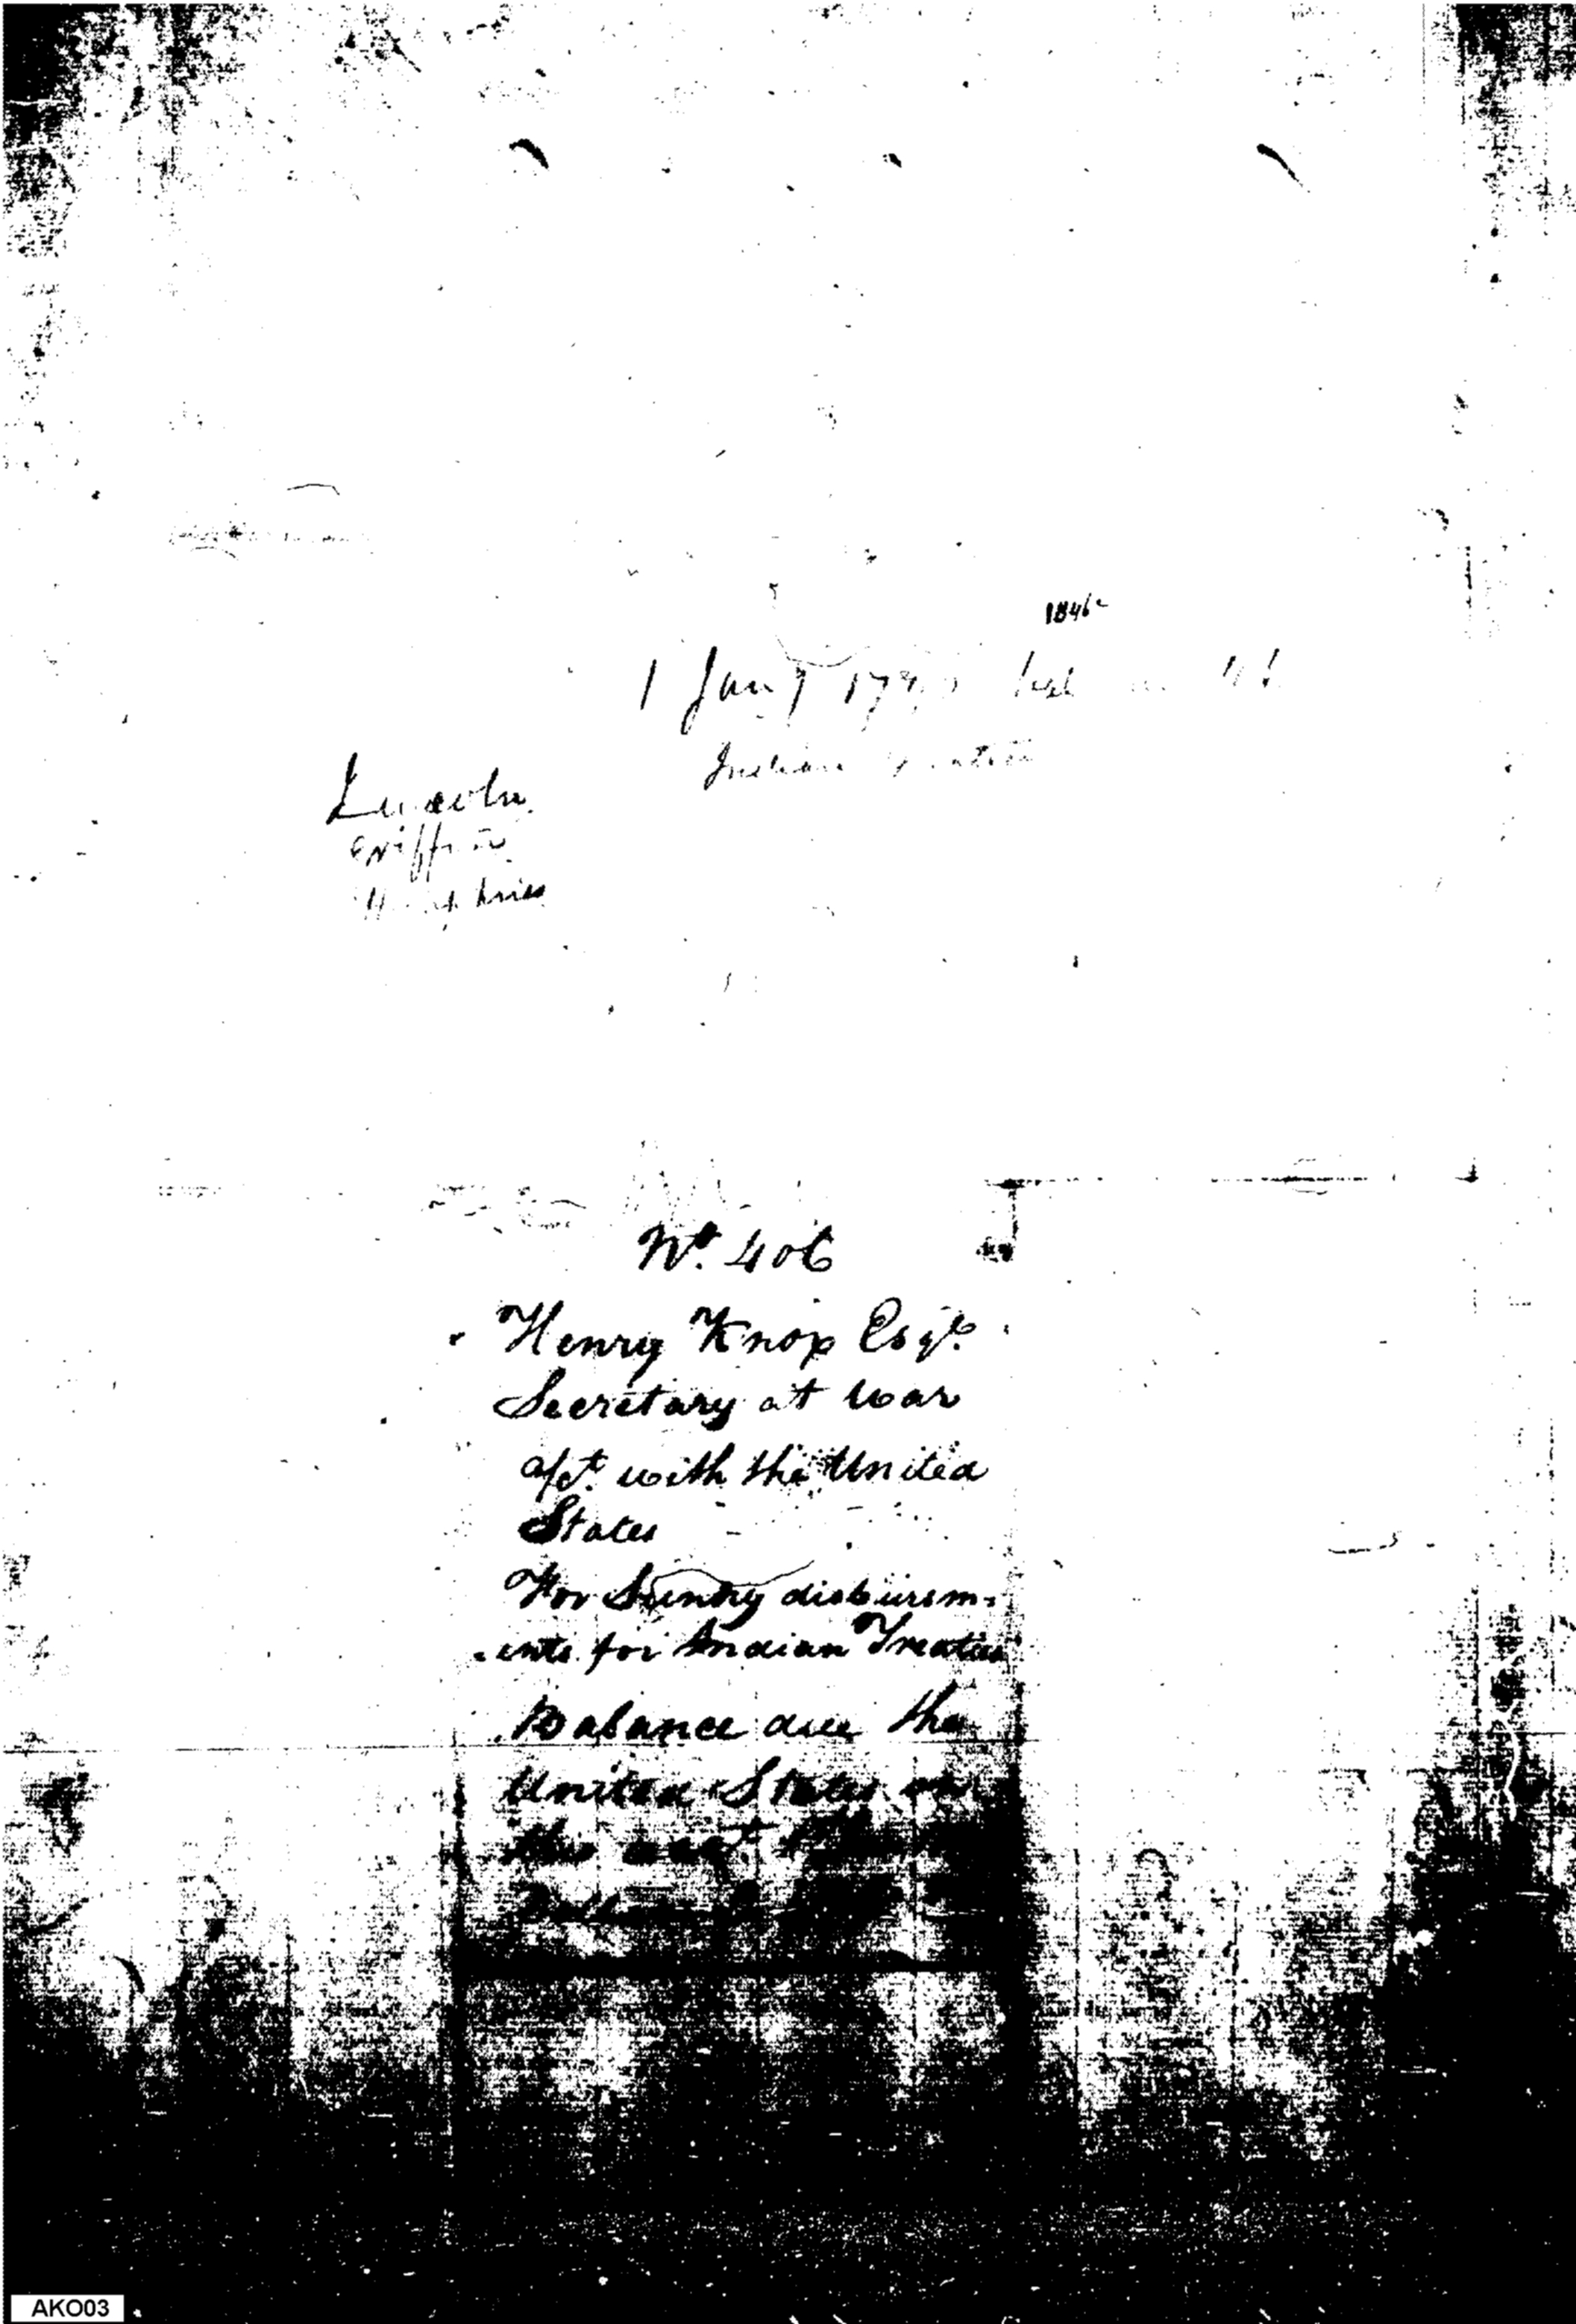 1846
1 Jany
Indian
Lincoln
Griffin
Humphries
No. 406
Henry Knox Esqr.
Secretary at war
a/ct. with the United
States
For Sundry disbursm-
-ents for Indian Treaties
Balance due the
United States on
this acct.
AKO03